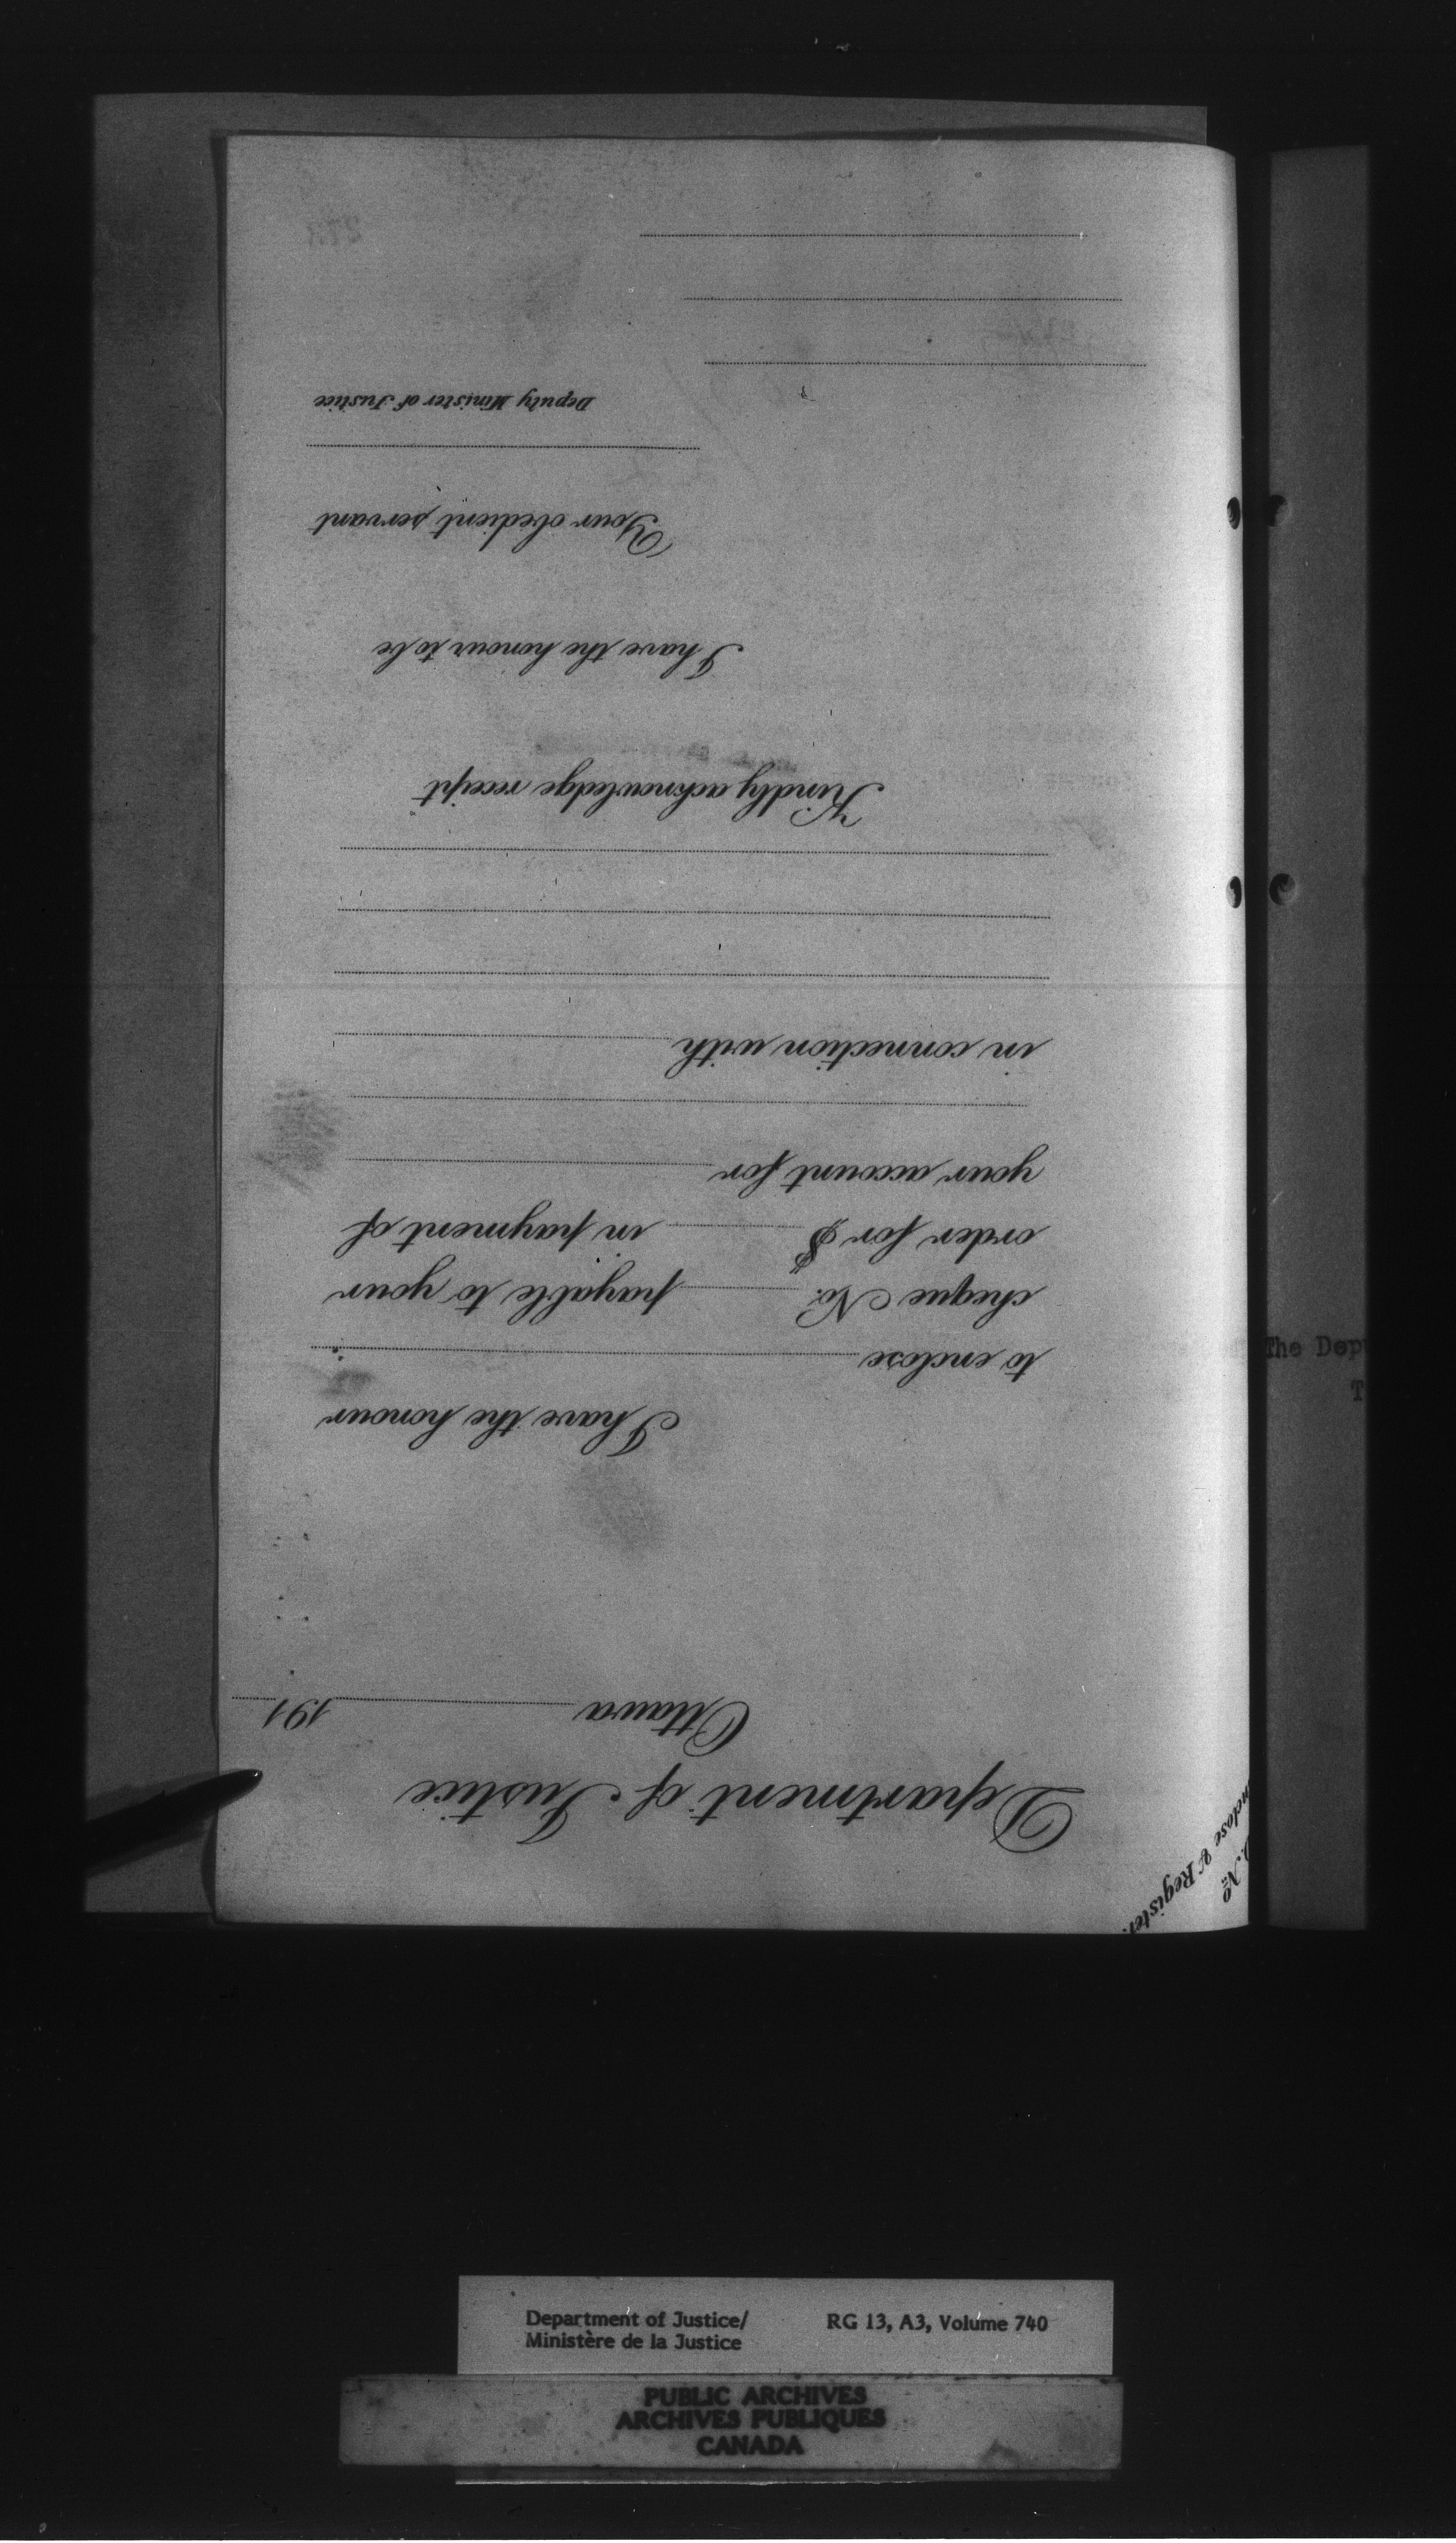 D. Nº
Enclose & Register.
Department of Justice
Ottawa 191
I have the honour
to enclose
cheque No. payable to your
order for $ in payment of
your account for
in connection with
Kindly acknowledge receipt
I have the honour to be
Your obedient servant
Deputy Minister of Justice
The Dep
T
Department of Justice/
Ministère de la Justice
RG 13, A3, Volume 740
PUBLIC ARCHIVES
ARCHIVES PUBLIQUES
CANADA